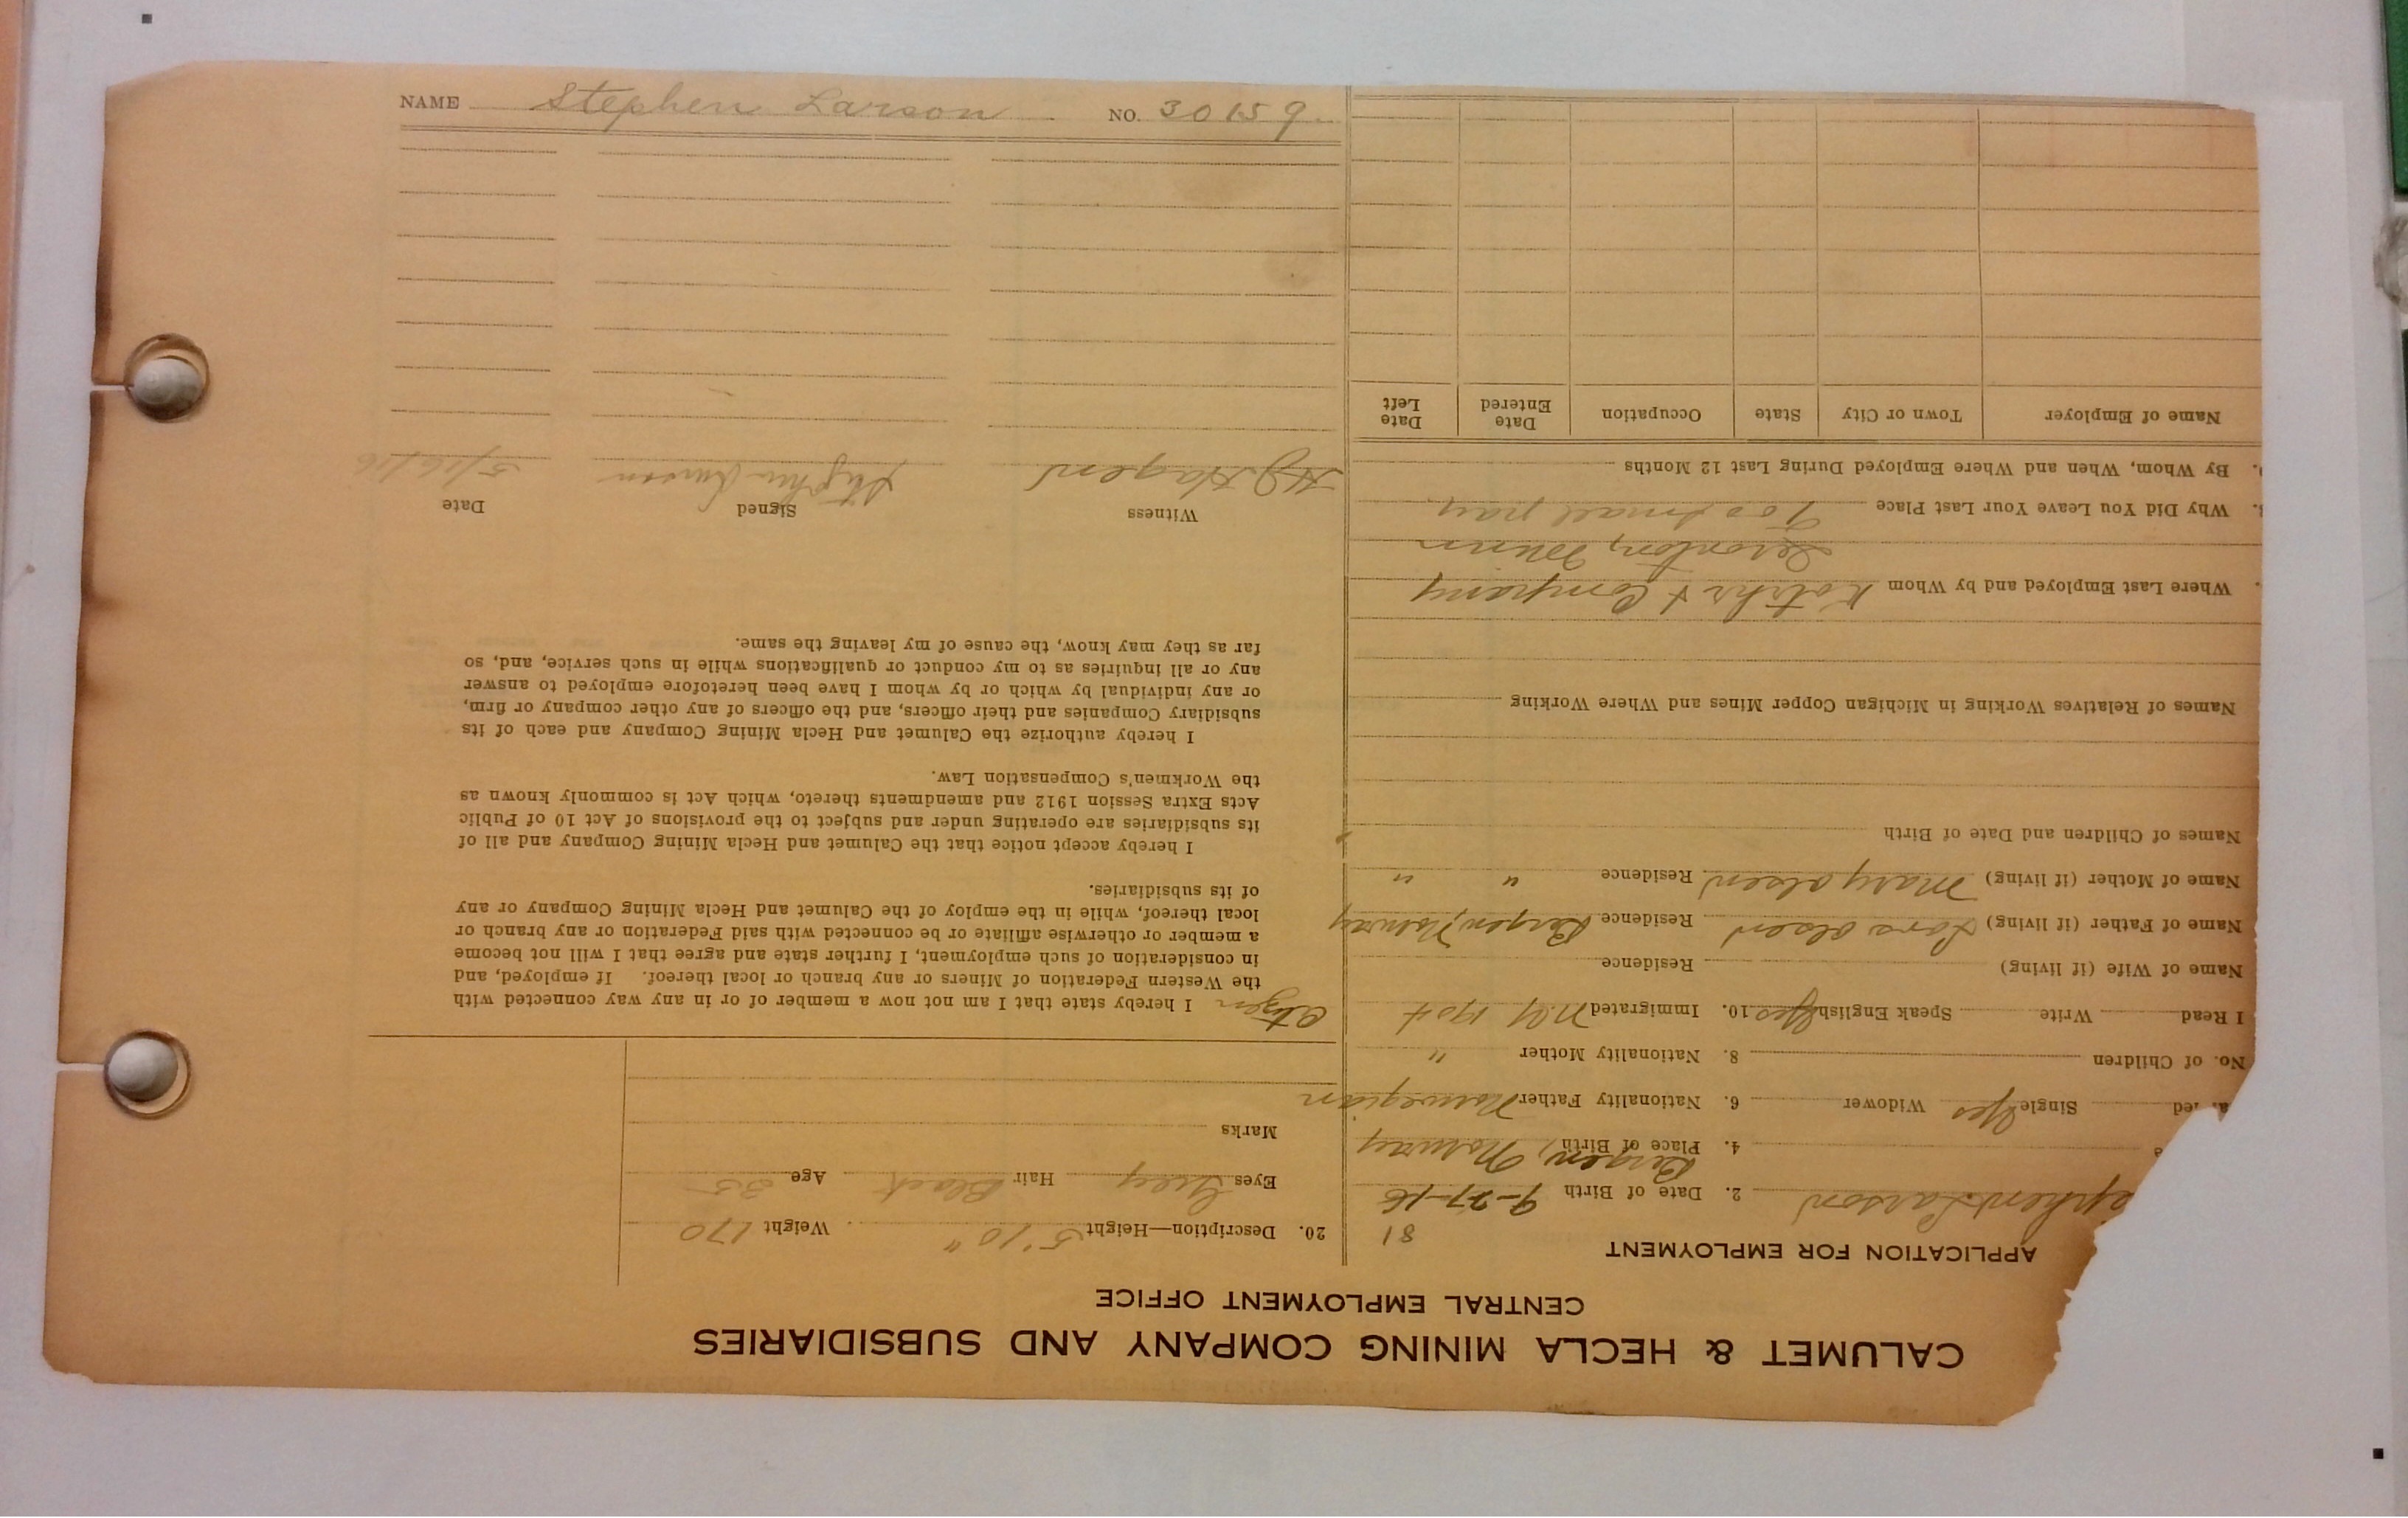 NAME Stephen Larson NO. 30159
CALUMET & HECLA MINING COMPANY AND SUBSIDIARIES
CENTRAL EMPLOYMENT OFFICE
APPLICATION FOR EMPLOYMENT
81
ephen Larson 2. Date of Birth 9-27-16
4. Place of Birth Bergen, Norway
Single Yes Widower 6. Nationality Father Norwegian
No. of Children 8. Nationality Mother "
I Read Write Speak English Yes 10. Immigrated N.Y. 1904
Name of Wife (if living) Residence
Name of Father (if living) Lars Olsen Residence Bergen, Norway
Name of Mother (if living) Mary Olsen Residence " "
Names of Children and Date of Birth
Names of Relatives Working in Michigan Copper Mines and Where Working
Where Last Employed and by Whom & Company
Ironton, Minn
Why Did You Leave Your Last Place Too small pay
By Whom, When and Where Employed During Last 12 Months
Name of Employer Town or City State Occupation Date Entered Date Left
20. Description—Height 5'10" Weight 170
Eyes Grey Hair Black Age 35
Marks
Citizen
I hereby state that I am not now a member of or in any way connected with
the Western Federation of Miners or any branch or local thereof. If employed, and
in consideration of such employment, I further state and agree that I will not become
a member or otherwise affiliate or be connected with said Federation or any branch or
local thereof, while in the employ of the Calumet and Hecla Mining Company or any
of its subsidiaries.
I hereby accept notice that the Calumet and Hecla Mining Company and all of
its subsidiaries are operating under and subject to the provisions of Act 10 of Public
Acts Extra Session 1912 and amendments thereto, which Act is commonly known as
the Workmen's Compensation Law.
I hereby authorize the Calumet and Hecla Mining Company and each of its
subsidiary Companies and their officers, and the officers of any other company or firm,
or any individual by which or by whom I have been heretofore employed to answer
any or all inquiries as to my conduct or qualifications while in such service, and, so
far as they may know, the cause of my leaving the same.
Witness Signed Date
H.J. Hagen Stephen Larson 5/16/16